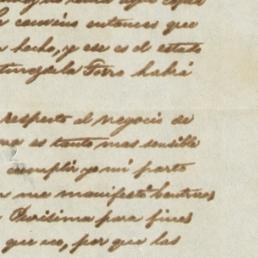 convenio entonces que
hecho, y ese es el estado
de la Torre habrá
respecto al negocio de
es tanto mas sensible
cumplir yo mi parte
me manifestó
para fines
que eso, por que las